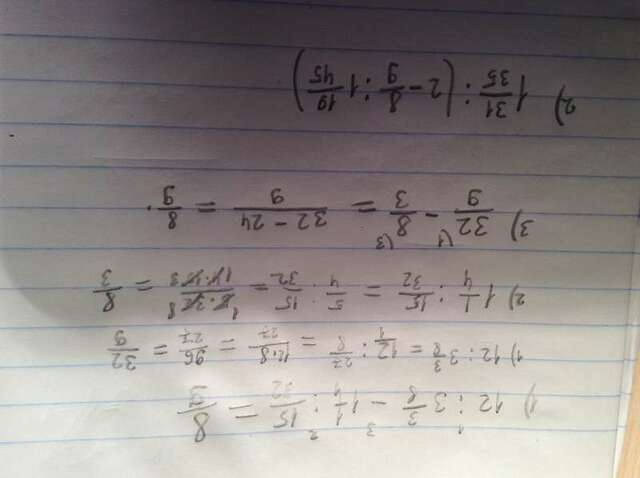 1) 12 : 3 3/8 - 1 1/4 : 15/32 = 8/9
1) 12 : 3 3/8 = 12/1 : 27/8 = 12·8/27 = 96/27 = 32/9
2) 1 1/4 : 15/32 = 5/4 : 15/32 = 5·32/4·15 = 8/3
3) 32/9 - 8/3 = 32-24/9 = 8/9.
2) 1 31/35 : (2 - 8/9 : 1 19/45)